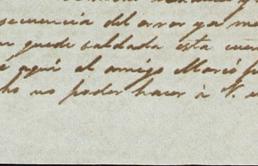 secuencia del error ya me
quede saldada esta cuen
aqui el amigo Mario
no poder hacer à V.